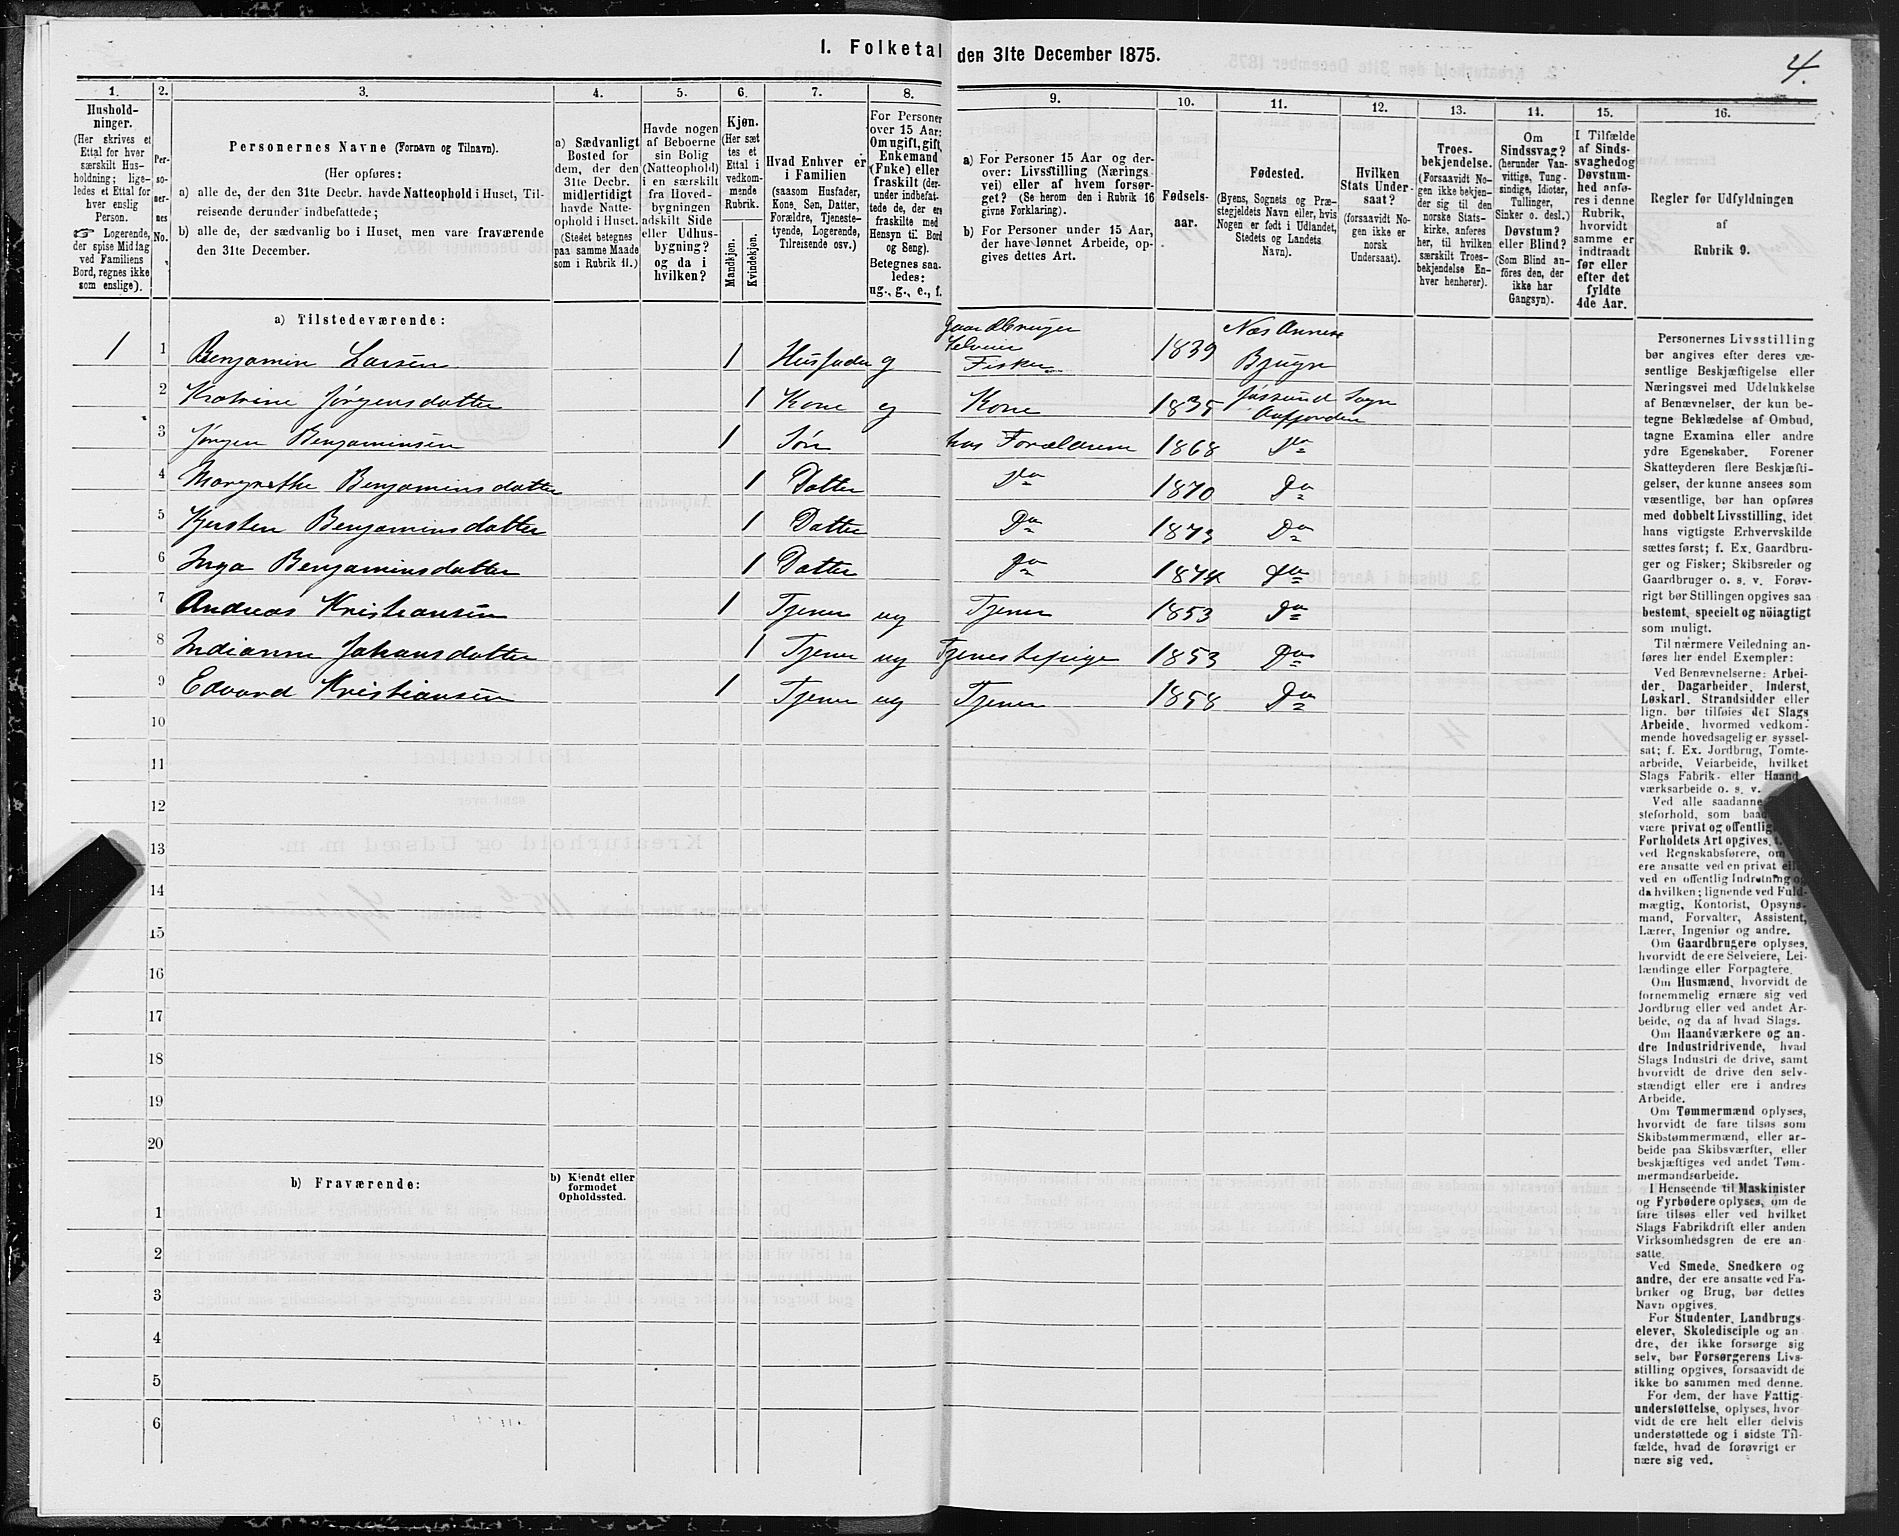 I. Folketal den 31te December 1875.
4.
1.
Hushold-
ninger.
(Her skrives et
Ettal for hver
særskilt Hus-
holdning; lige-
ledes et Ettal for
hver enslig
Person.
☞ Logerende,
der spise Middag
ved Familiens
Bord, regnes ikke
som enslige).
2.
Per-
so-
ner-
nes
No.
3.
Personernes Navne (Fornavn og Tilnavn).
(Her opføres:
a) alle de, der den 31te Decbr. havde Natteophold i Huset, Til-
reisende derunder indbefattede;
b) alle de, der sædvanlig bo i Huset, men vare fraværende
den 31te December.
4.
a) Sædvanligt
Bosted for
dem, der den
31te Decbr.
midlertidigt
havde Natte-
ophold i Huset.
(Stedet betegnes
paa samme Maade
som i Rubrik 11.)
5.
Havde nogen
af Beboerne
sin Bolig
(Natteophold)
i en særskilt
fra Hoved-
bygningen
adskilt Side
eller Udhus-
bygning?
og da i
hvilken?
6.
Kjøn.
(Her sæt-
tes et
Ettal i
vedkom-
mende
Rubrik.
Mandkjøn.
Kvindekjøn.
7.
Hvad Enhver er
i Familien
(saasom Husfader,
Kone, Søn, Datter,
Forældre, Tjeneste-
tyende, Logerende,
Tilreisende osv.)
8.
For Personer
over 15 Aar:
Om ugift, gift,
Enkemand
(Enke) eller
fraskilt (der-
under indbefat-
tede de, der ere
fraskilte med
Hensyn til Bord
og Seng).
Betegnes saa-
ledes:
ug., g., e., f.
9.
a) For Personer 15 Aar og der-
over: Livsstilling (Nærings
vei) eller af hvem forsør-
get? (Se herom den i Rubrik 16
givne Forklaring).
b) For Personer under 15 Aar,
der have lønnet Arbeide, op-
gives dettes Art.
10.
Fødsels-
aar.
11.
Fødested.
(Byens, Sognets og Præ-
stegjeldets Navn eller, hvis
Nogen er født i Udlandet,
Stedets og Landets
Navn).
12.
Hvilken
Stats Under-
saat?
(forsaavidt No-
gen ikke er
norsk
Undersaat).
13.
Troes-
bekjendelse.
(Forsaavidt No-
gen ikke bekjen-
der sig til den
norske Stats-
kirke, anføres
her, til hvilken
særskilt Troes-
bekjendelse En-
hver henhører).
14.
Om
Sindssvag?
(herunder Van-
vittige, Tung-
sindige, Idioter,
Tullinger,
Sinker o. desl.)
Døvstum?
eller Blind?
(Som Blind an-
føres den, der
ikke har
Gangsyn).
15.
I Tilfælde
af Sinds-
svaghed og
Døvstum-
hed anfø-
res i denne
Rubrik,
hvorvidt
samme er
indtraadt
før eller
efter det
fyldte
4de Aar.
16.
Regler for Udfyldningen
af
Rubrik 9.
a) Tilstedeværende:
1 1 Benjamin Larsen 1 Husfader g Gaardbruger Selveier Fisker 1839 Næs Annexe Bjugn
2 Katrine Jørgensdatter 1 Kone g Kone 1835 Jøssund Sogn Aafjorden
3 Jørgen Benjaminsen 1 Søn hos Forældrene 1868 Do
4 Margrethe Benjaminsdatter 1 Datter Do 1870 Do
5 Kjersten Benjaminsdatter 1 Datter Do 1873 Do
6 Inga Benjaminsdatter 1 Datter Do 1874 Do
7 Andreas Kristiansen 1 Tjener ug Tjener 1853 Do
8 Indianne Johansdatter 1 Tjener ug Tjenestepige 1853 Do
9 Edvard Kristiansen 1 Tjener ug Tjener 1858 Do
10
11
12
13
14
15
16
17
18
19
20
b) Fraværende:
b) Kjendt eller
formodet
Opholdssted.
1
2
3
4
5
6
Personernes Livsstilling
bør angives efter deres væ-
sentlige Beskjæftigelse eller
Næringsvei med Udelukkelse
af Benævnelser, der kun be-
tegne Beklædelse af Ombud,
tagne Examina eller andre
ydre Egenskaber. Forener
Skatteyderen flere Beskjæfti-
gelser, der kunne ansees som
væsentlige, bør han opføres
med dobbelt Livsstilling, idet
hans vigtigste Erhvervskilde
sættes først; f. Ex. Gaardbru-
ger og Fisker; Skibsreder og
Gaardbruger o. s. v. Forøv-
rigt bør Stillingen opgives saa
bestemt, specielt og nöiagtigt
som muligt.
Til nærmere Veiledning an-
føres her endel Exempler:
Ved Benævnelserne: Arbei-
der, Dagarbeider, Inderst,
Løskarl, Strandsidder eller
lign. bør tilføies det Slags
Arbeide, hvormed vedkom-
mende hovedsagelig er syssel-
sat; f. Ex. Jordbrug, Tomte-
arbeide, Veiarbeide, hvilket
Slags Fabrik- eller Haand-
værksarbeide o. s. v.
Ved alle saadanne
steforhold, som baa
være privat og offentlig
Forholdets Art opgives,
ved Regnskabsførere, om
ere ansatte ved en privat
ved en offentlig Indretning og
da hvilken; lignende ved Fuld-
mægtig, Kontorist, Opsyns-
mand, Forvalter, Assistent,
Lærer, Ingeniør og andre.
Om Gaardbrugere oplyses,
hvorvidt de ere Selveiere, Lei-
lændinge eller Forpagtere.
Om Husmænd, hvorvidt de
fornemmelig ernære sig ved
Jordbrug eller ved andet Ar-
beide, og da af hvad Slags.
Om Haandværkere og an-
dre Industridrivende, hvad
Slags Industri de drive, samt
hvorvidt de drive den selv-
stændigt eller ere i andres
Arbeide.
Om Tømmermænd oplyses,
hvorvidt de fare tilsøs som
Skibstømmermænd, eller ar-
beide paa Skibsværfter, eller
beskjæftiges ved andet Tøm-
mermandsarbeide.
I Henseende til Maskinister
og Fyrbødere oplyses, om de
fare tilsøs eller ved hvilket
Slags Fabrikdrift eller anden
Virksomhedsgren de ere an-
satte.
Ved Smede, Snedkere og
andre, der ere ansatte ved Fa-
briker og Brug, bør dettes
Navn opgives.
For Studenter, Landbrugs
elever, Skoledisciple og an
dre, der ikke forsørge sig
selv, bør Forsørgerens Livs-
stilling opgives, forsaavidt de
ikke bo sammen med denne.
For dem, der have Fattig-
understøttelse, oplyses, hvor-
vidt de ere helt eller delvis
understøttede og i sidste Til-
fælde, hvad de forøvrigt er
nære sig ved.